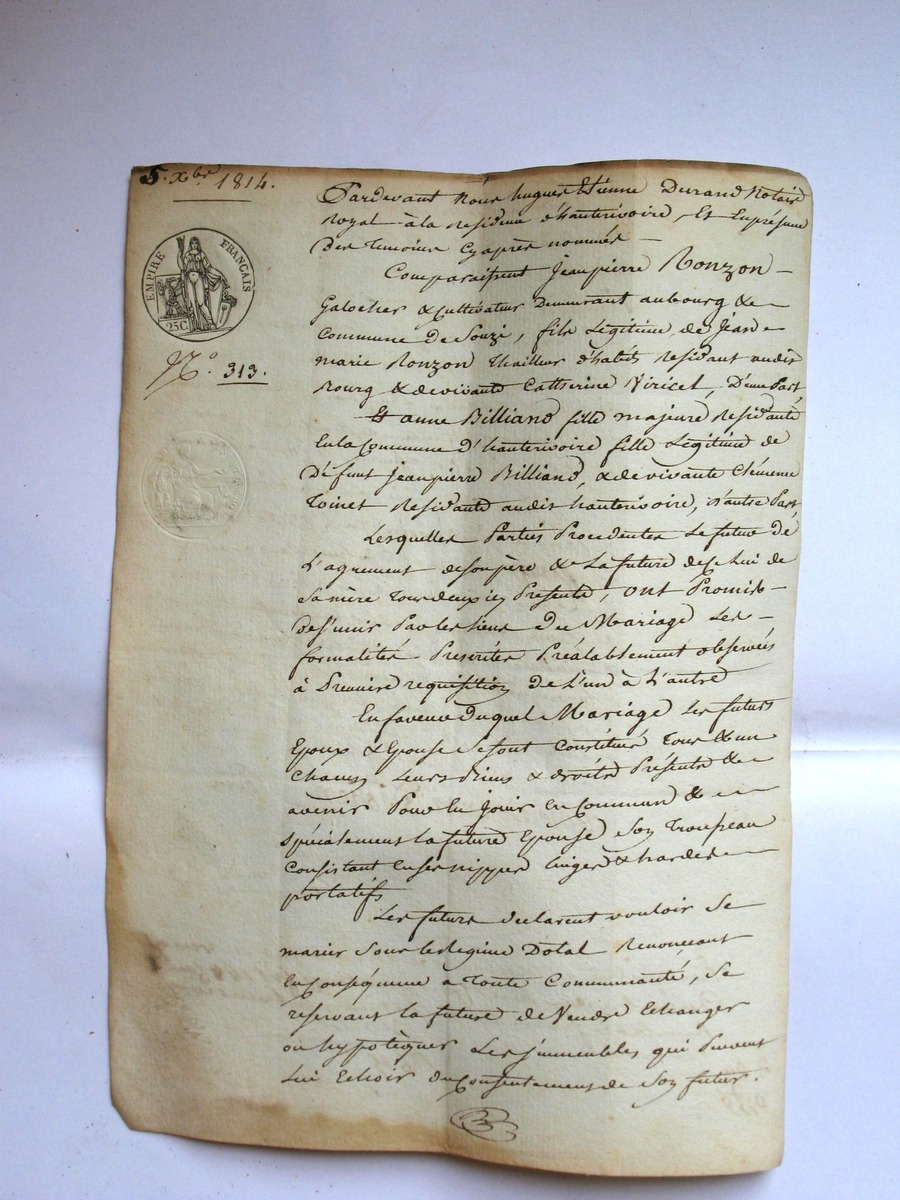 5. Xbre 1814.
EMPIRE FRANÇAIS
25C
N.° 313.
Pardevant Nous hugues Etiénne Durand Notaire
Royal à la Residence d'hauterivoire, Et En présence
Des Temoins Cyaprès nommés
Comparaissent Jeanpierre Ronzon
Galocher & Cultivateur Demeurant aubourg &
Commune de Souzi, fils Légitime de Jean
marie Ronzon Thailleur d'habits Residant audit
Bourg & de vivante Catherine Viricel, D'une Part,
Et anne Billiand fille majeure Residante
En la Commune D'hauterivoire fille Légitime de
Défunt Jeanpierre Billiand, & de vivante Clémence
Toinet Residante audit hauterivoire, D'autre Part,
Lesquelles Parties Procedentes Le futur de
L'agrement desonpère & La future de Celui de
Sa mère Tous deux icy Presents, ont Promis
de S'unir Par les Liens du Mariage Les
formalités Prescrites Préalablement observées
à Premiere requisition de L'un à L'autre
En faveur Duquel Mariage Les futurs
Epoux & Epouse Se sont Constitués Tous & un
Chacun Leurs Biens & droits Présents &
avenir Pour En Jouir En Commun &
spécialement La future Epouse Son Trousseau
Consistant En Ses nippes Linges & hardes
portatifs
Les futurs declarent vouloir Se
marier Sous le Regime Dotal Renonceant
En Conséquence a Toute Communauté, Se
reservant La future de Vendre Echanger
ou hypotèquer Les immeubles qui Peuvent
Lui Echoir du Consentement de Son futur.